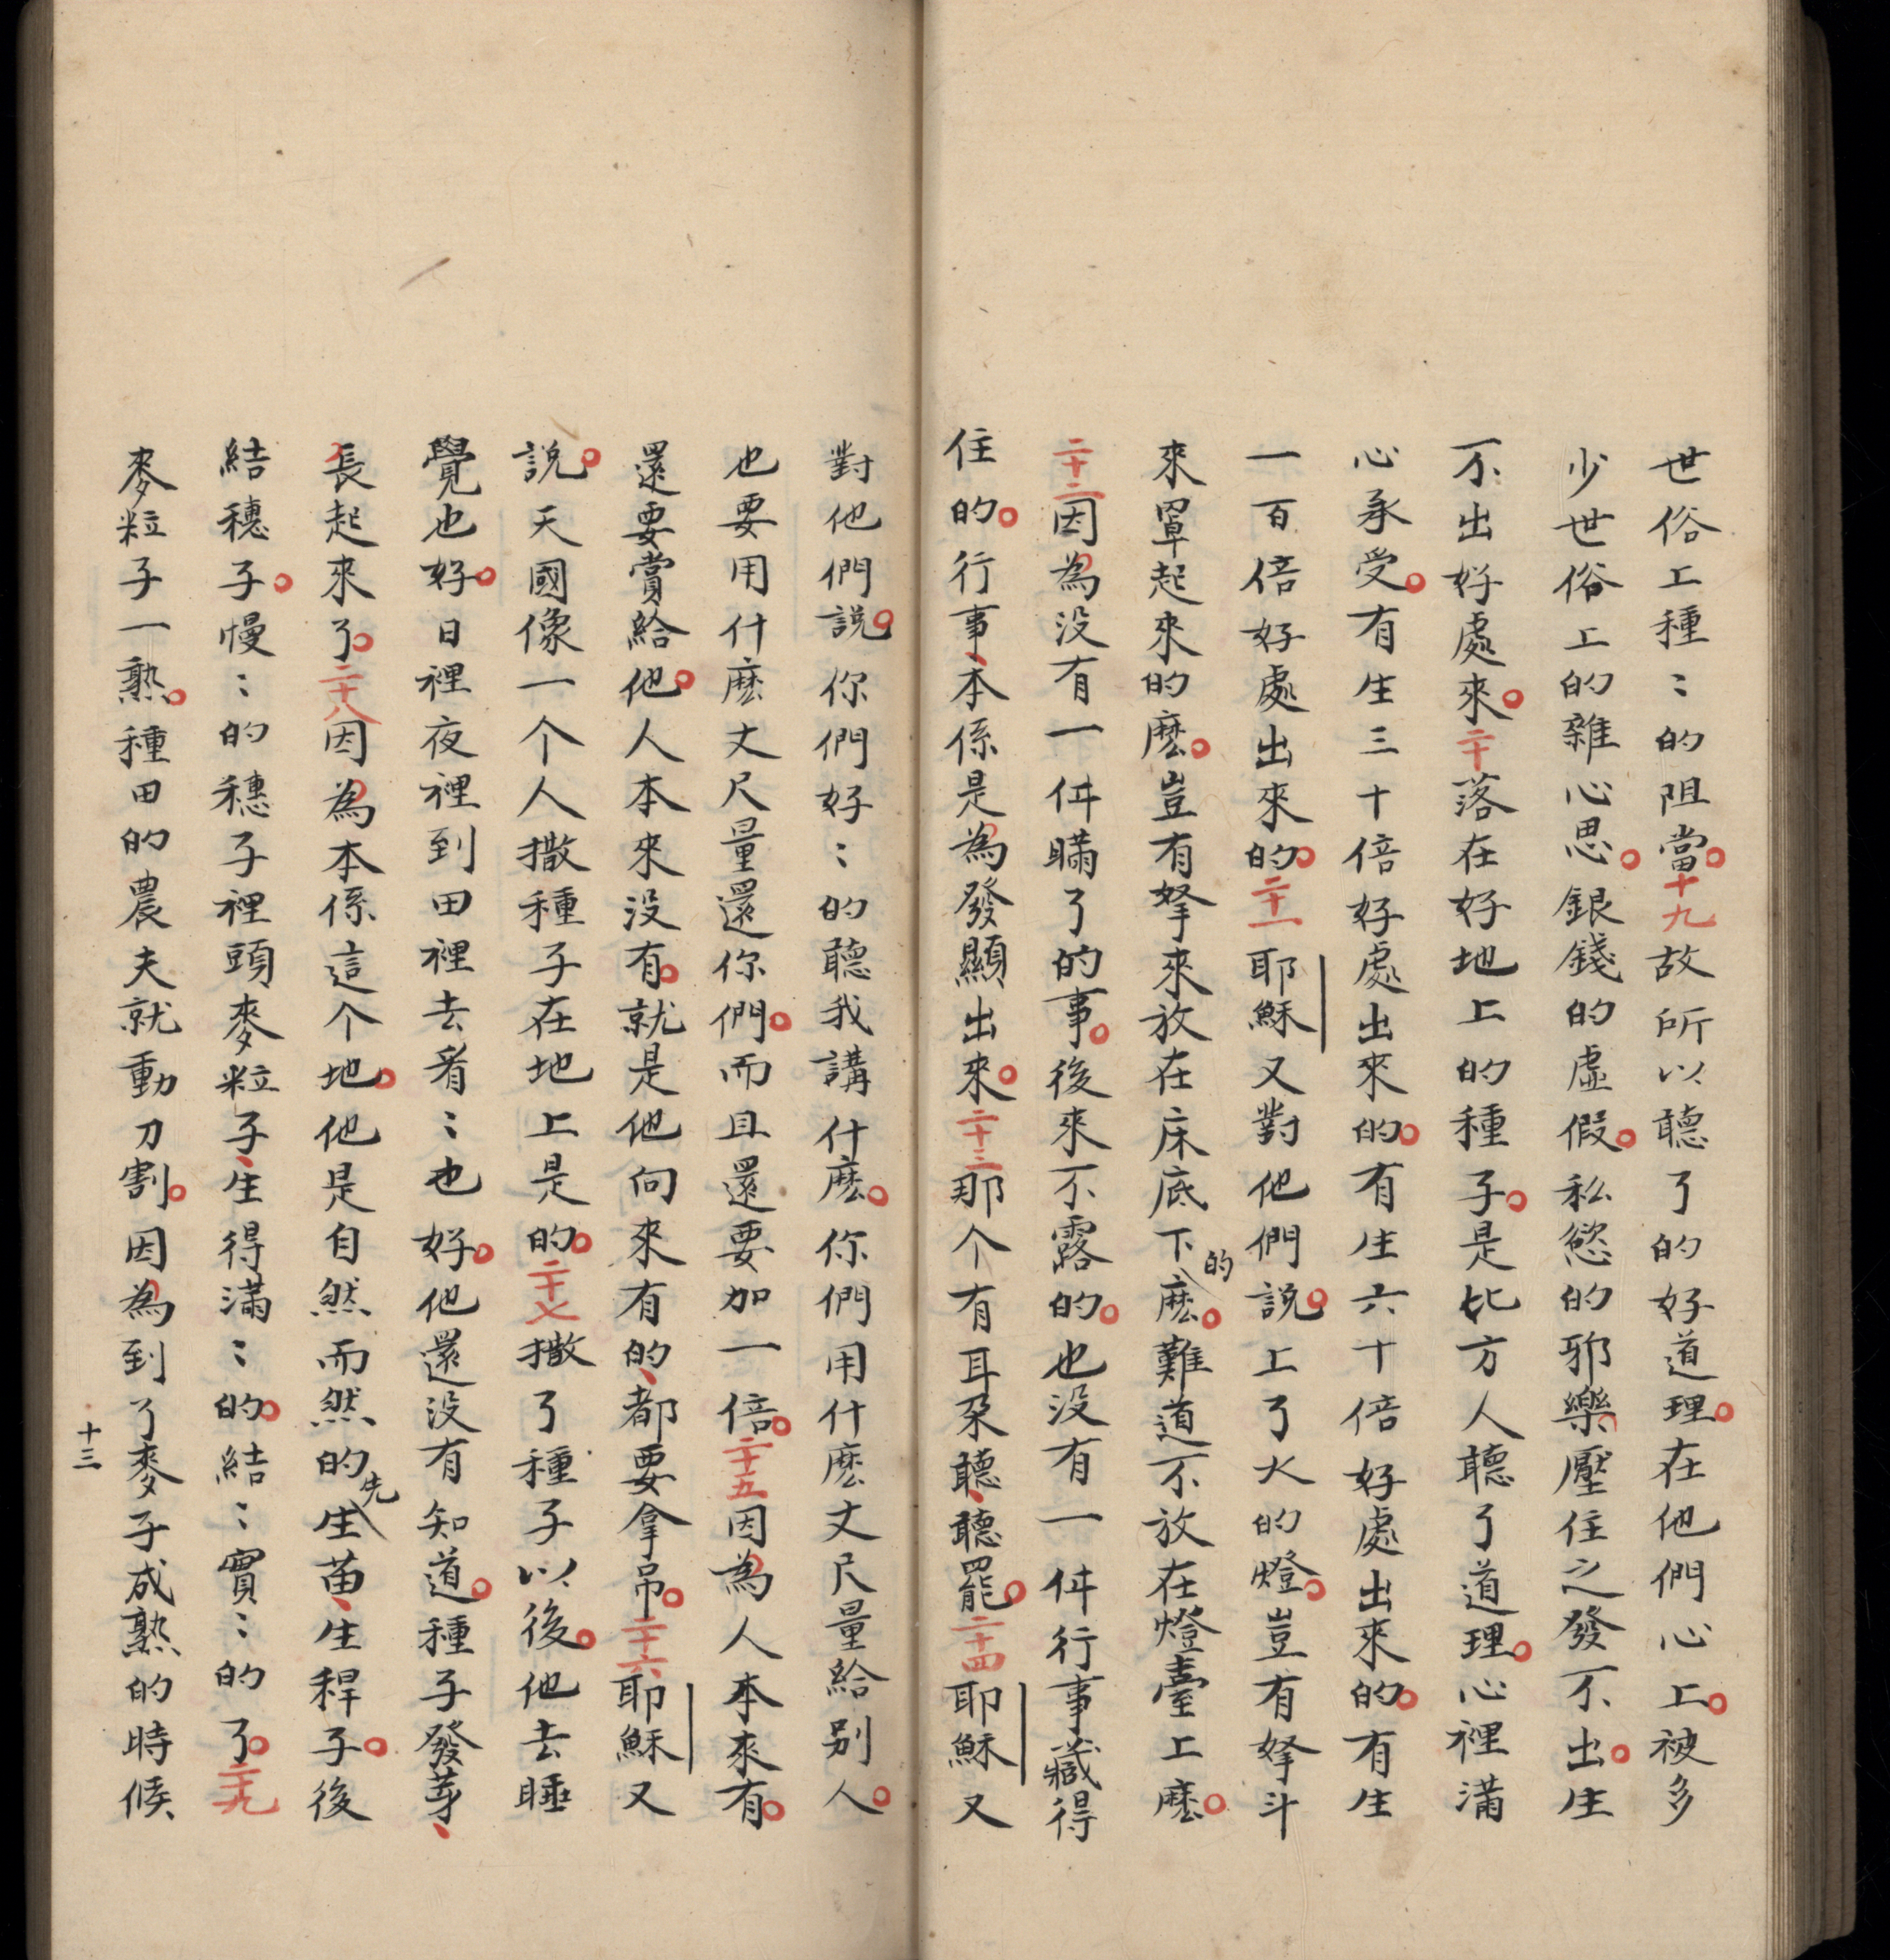 世俗上種〻的阻當。十九故所以聽了的好道理。在他們心上。被多
少世俗上的雜心思。銀錢的虛假。私慾的邪樂。壓住之發不出。生
不出好處來。二十落在好地上的種子。是比方人聽了道理。心裡滿
心承受。有生三十倍好處出來的。有生六十倍好處出來的。有生
一百倍好處出來的。二十一耶穌又對他們說。上了火的燈。豈有拏斗
來罩起來的麽。豈有拏來放在床底下的麽。難道不放在燈臺上麽。
二十二因為没有一件瞞了的事。後來不露的。也没有一件行事藏得
住的。行事、本係是為發顯出來。二十三那个有耳朶聽、聽罷。二十四耶穌又
對他們說。你們好〻的聽我講什麽。你們用什麽丈尺量給别人。
也要用什麽丈尺量還你們。而且還要加一倍。二十五因為人本來有。
還要賞給他。人本來没有。就是他向來有的、都要拿吊。二十六耶穌又
說。天國像一个人撒種子在地上是的。二十七撒了種子以後。他去睡
覺也好。日裡夜裡到田裡去看〻也好。他還没有知道。種子發芽、
長起來了。二十八因為本係這个地。他是自然而然的先生苗、生稈子。後
結穗子。慢〻的穗子裡頭麥粒子、生得滿〻的。結〻實〻的了。二十九
麥粒子一熟。種田的農夫就動刀割。因為到了麥子成熟的時候
十三